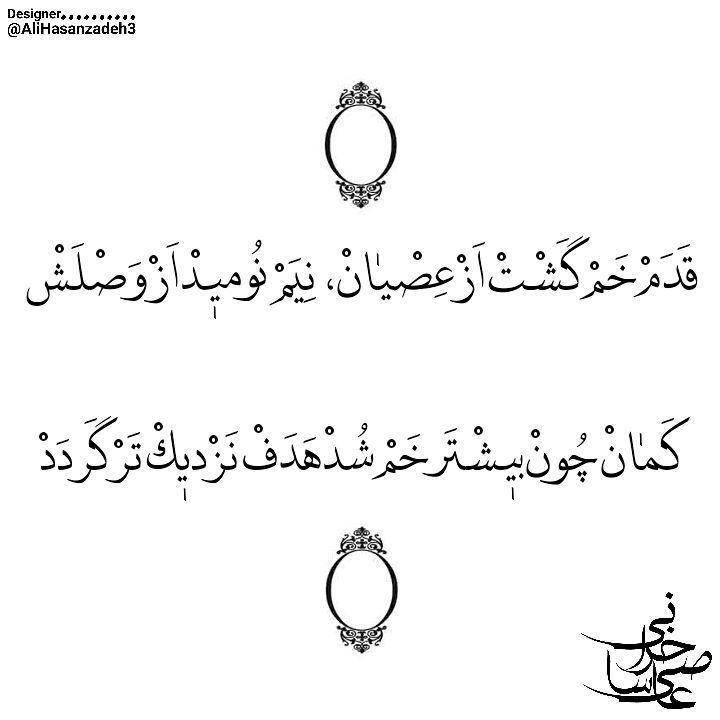 Designer..........
@AliHasanzadeh3
قَدَمْ خَمْ گَشْتْ اَزْ عِصْیٰانْ، نِیَمْ نُومیٖدْ اَزْ وَصْلَشْ
کَمٰانْ چُونْ بیٖشْتَر خَمْ شُدْ هَدَفْ نَزْدیٖكْ تَرْ گَردَدْ